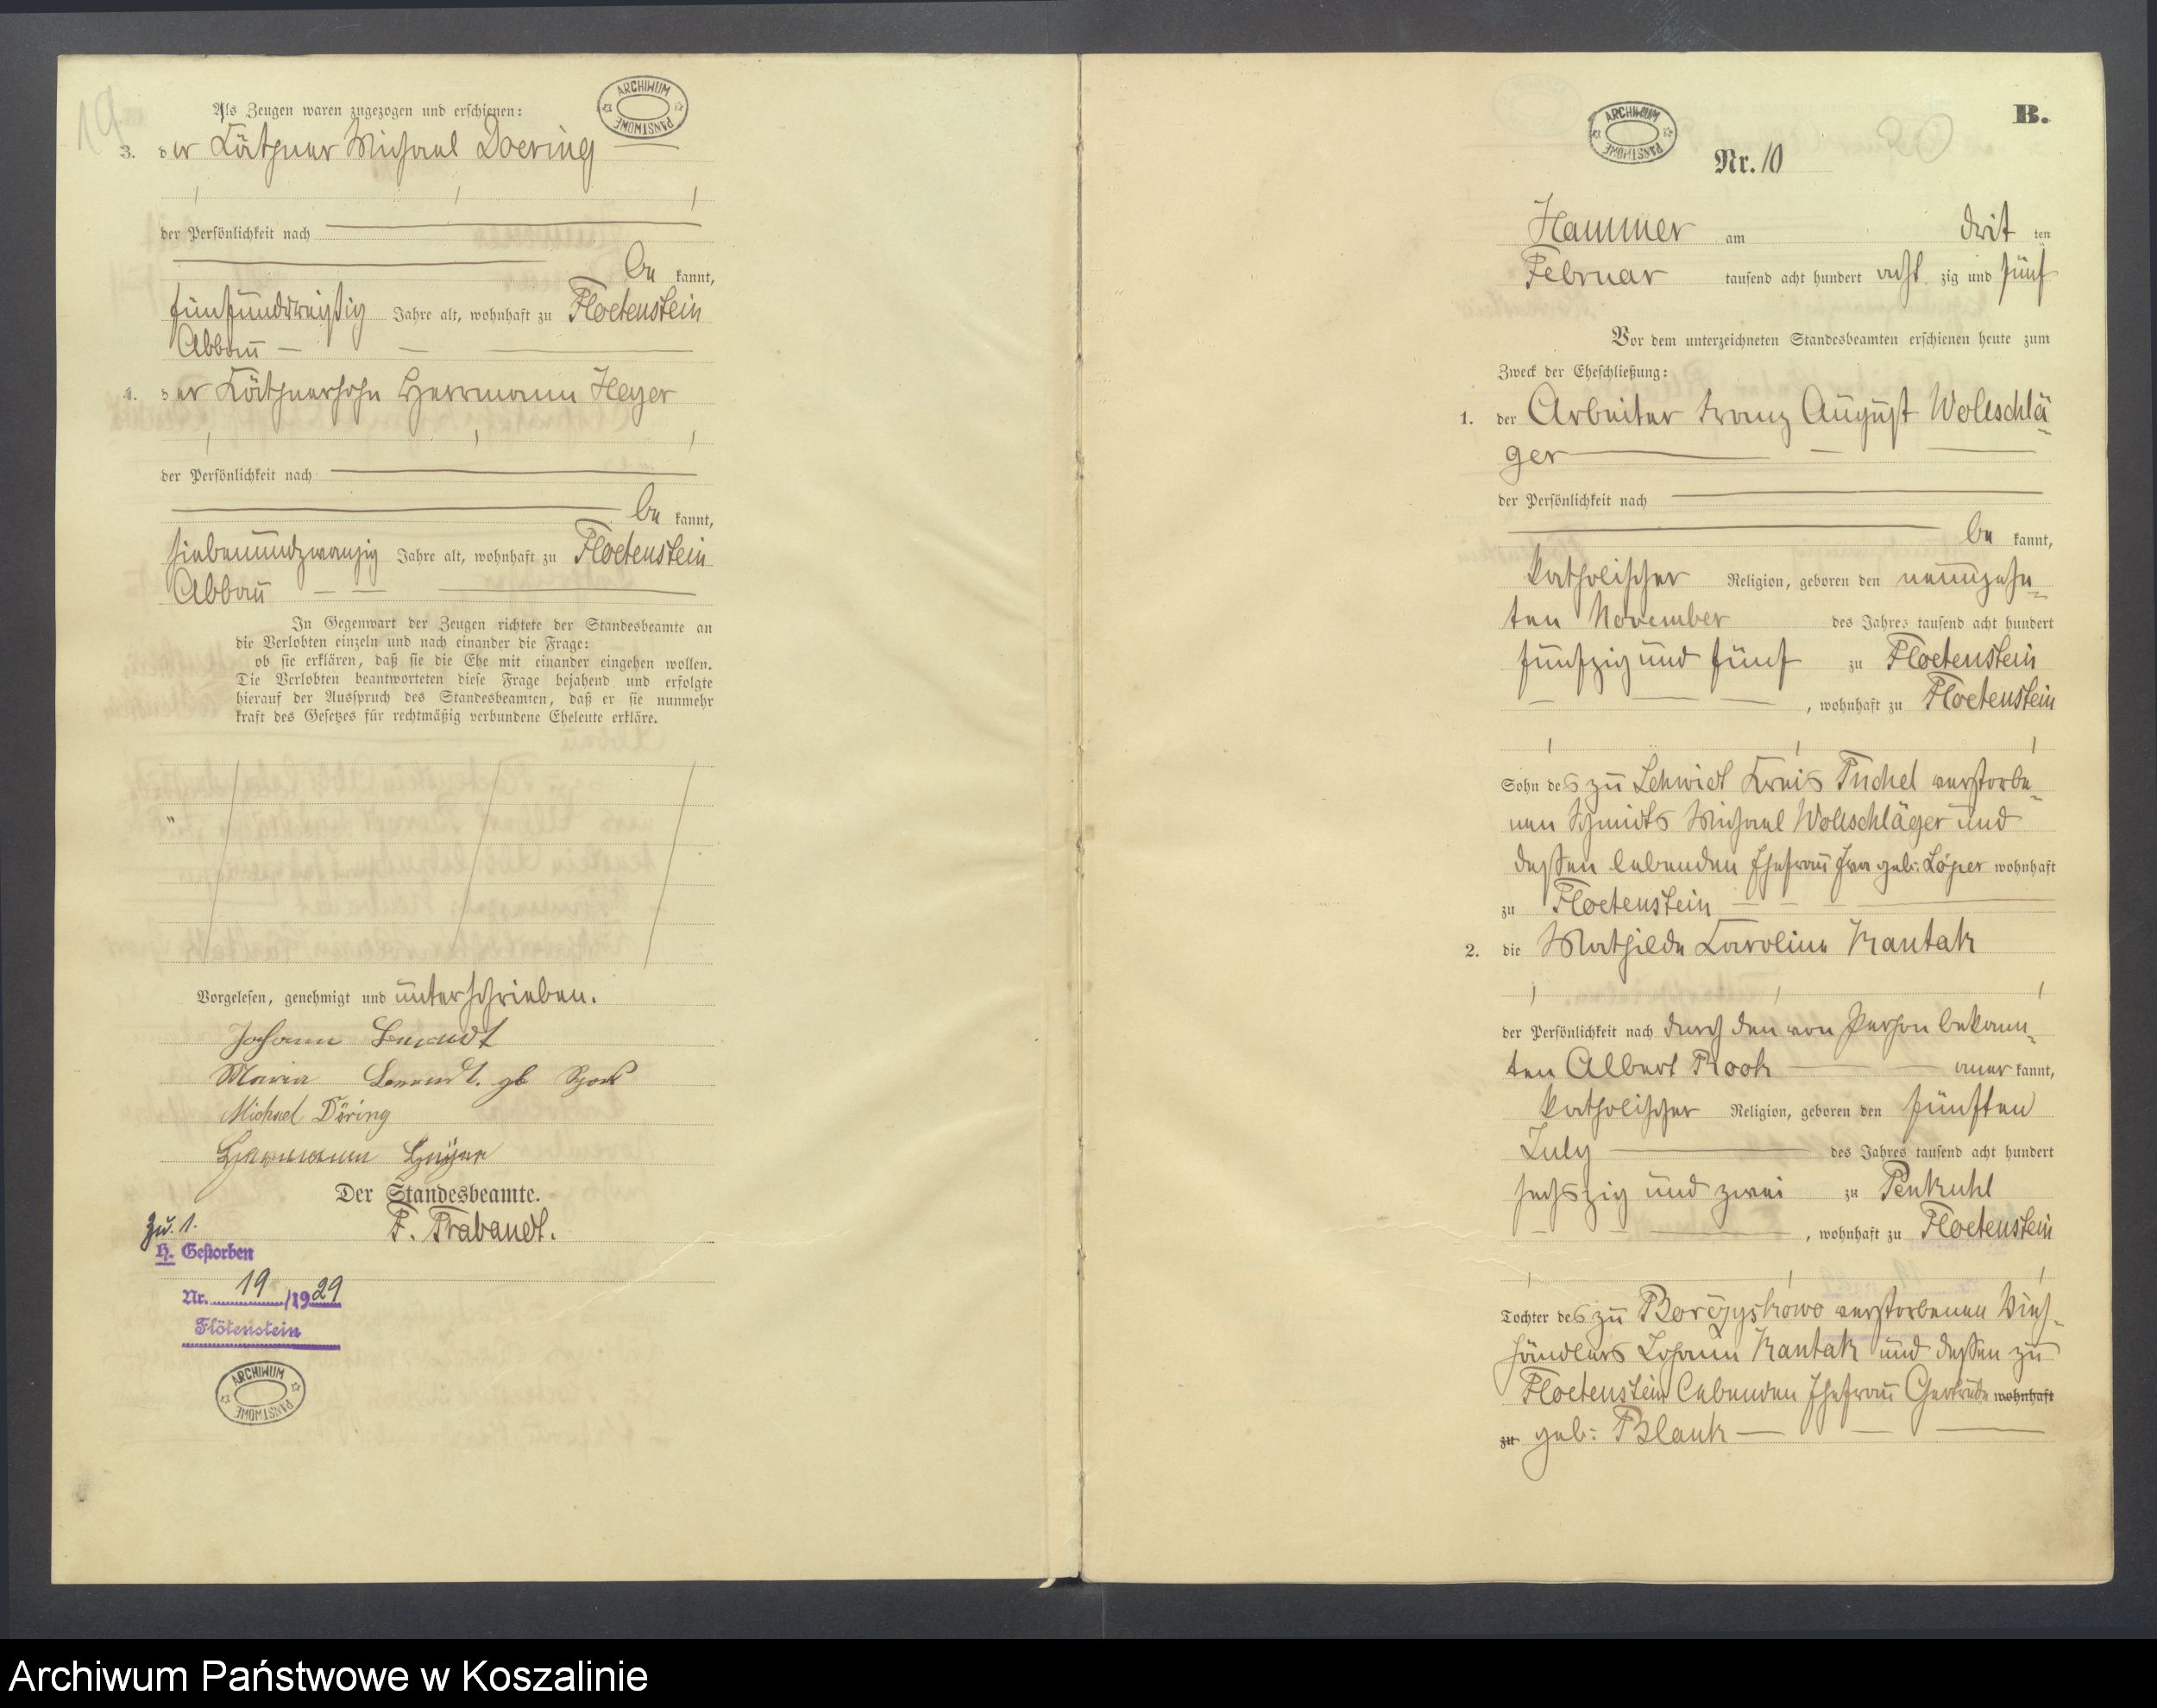 19
ARCHIWUM PAŃSTWOWE
Als Zeugen waren zugezogen und erschienen:
3. der Käthner Michael Doering
der Persönlichkeit nach
be kannt,
fünfunddreißig Jahre alt, wohnhaft zu Floetenstein
Abbau
4. der Käthnersohn Herrmann Heyer
der Persönlichkeit nach
be kannt,
siebenundzwanzig Jahre alt, wohnhaft zu Floetenstein
Abbau
In Gegenwart der Zeugen richtete der Standesbeamte an
die Verlobten einzeln und nach einander die Frage:
ob sie erklären, daß sie die Ehe mit einander eingehen wollen.
Die Verlobten beantworteten diese Frage bejahend und erfolgte
hierauf der Ausspruch des Standesbeamten, daß er sie nunmehr
kraft des Gesetzes für rechtmäßig verbundene Eheleute erkläre.
Vorgelesen, genehmigt und unterschrieben.
Johann
Maria gb
Michael Döring
Herrmann Heyer
Der Standesbeamte.
F. Trabandt.
Zu. 1.
H. Gestorben
Nr. 19 /1929
Flötenstein
ARCHIWUM PAŃSTWOWE
B.
ARCHIWUM PAŃSTWOWE
Nr. 10
Hammer am drit ten
Februar tausend acht hundert acht zig und fünf
Vor dem unterzeichneten Standesbeamten erschienen heute zum
Zweck der Eheschließung:
1. der Arbeiter Franz August Wollschlä
ger
der Persönlichkeit nach
be kannt,
katholischer Religion, geboren den neunzehn
ten November des Jahres tausend acht hundert
fünfzig und fünf zu Floetenstein
, wohnhaft zu Floetenstein
Sohn des zu Kreis Tuchel verstorbe
nen Schmidts Michael Wollschläger und
dessen lebenden Ehefrau Eva geb: Löper wohnhaft
zu Floetenstein
2. die Mathilde Caroline Kantak
der Persönlichkeit nach durch den von Person bekann
ten Albert Rook aner kannt,
katholischer Religion, geboren den fünften
July des Jahres tausend acht hundert
sechszig und zwei zu Penkuhl
, wohnhaft zu Floetenstein
Tochter des zu Borczyskowo verstorbenen Vieh
händlers Johann Kantak und dessen zu
Floetenstein lebenden Ehefrau Gertrude wohnhaft
zu geb: Blank
Archiwum Państwowe w Koszalinie